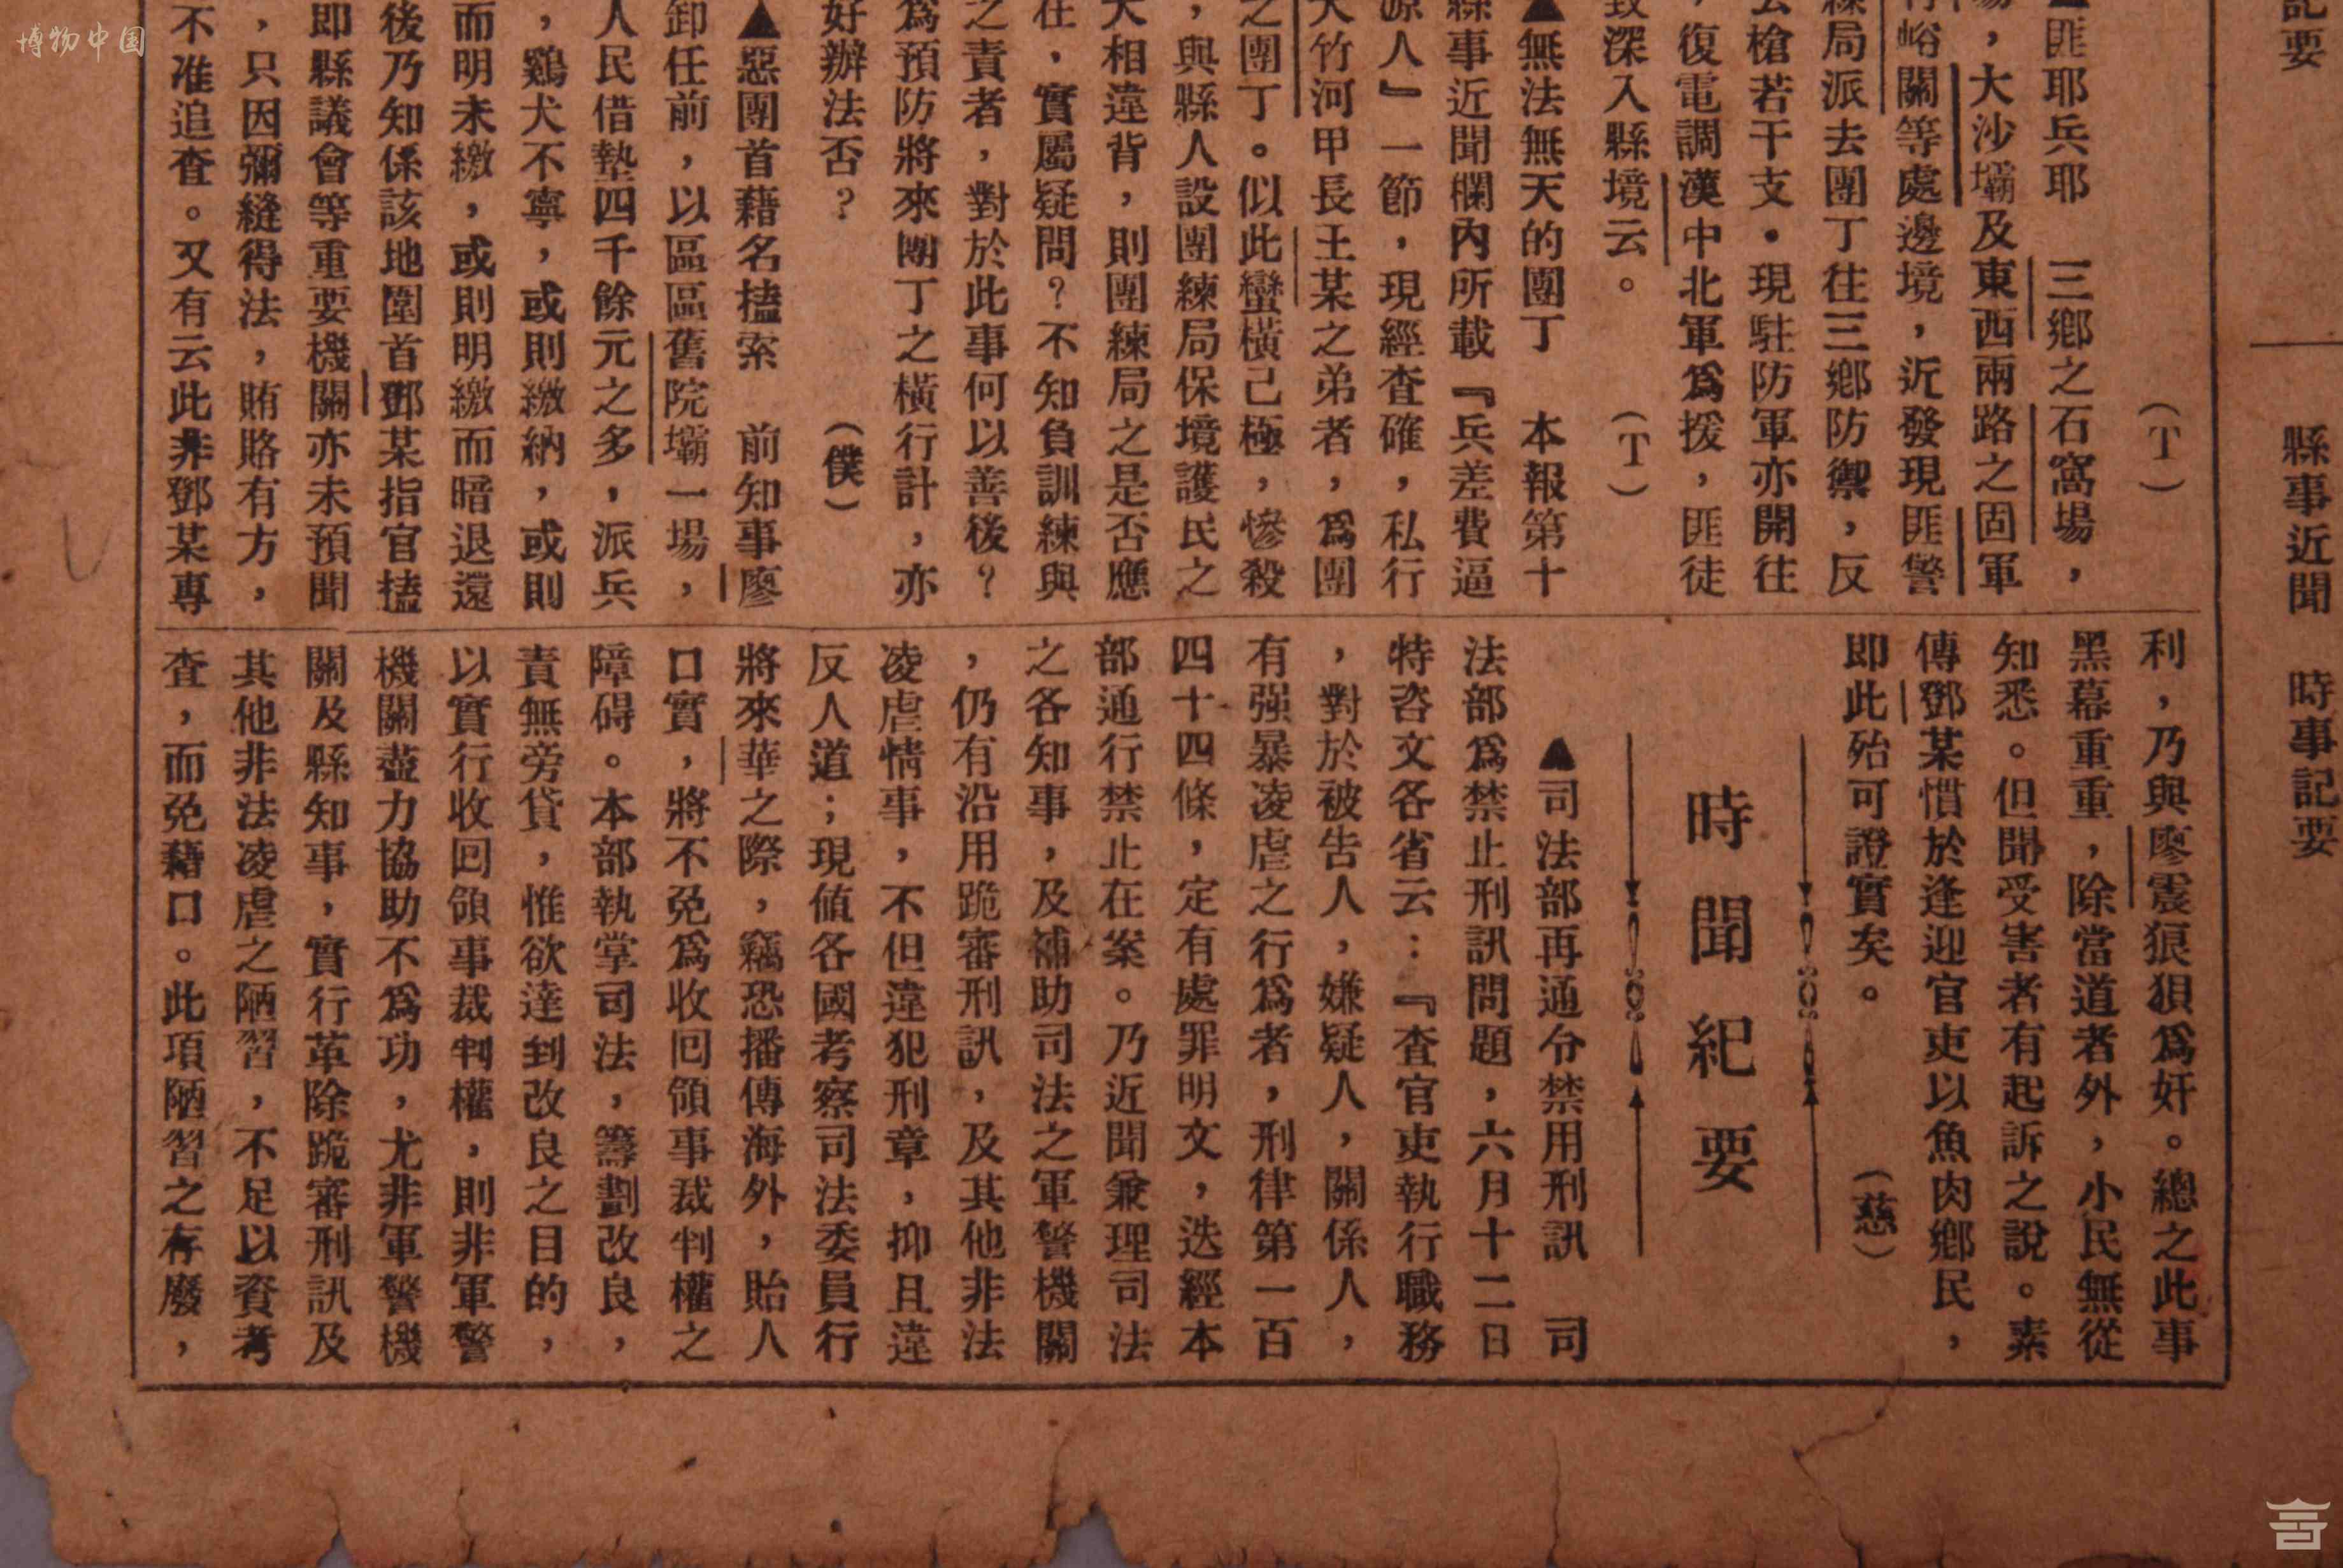 博物中国
記要
縣事近聞　時事記要
（T）
匪耶兵耶　三鄉之石窩場，
，大沙壩及東西兩路之固軍
峪關等處邊境，近發現匪警
局派去團丁往三鄉防禦，反
槍若干支・現駐防軍亦開往
，復電調漢中北軍爲援，匪徒
致深入縣境云。　（T）
▲無法無天的團丁　本報第十
縣事近聞欄內所載『兵差費逼
源人』一節，現經查確，私行
大竹河甲長王某之弟者，爲團
之團丁。似此蠻橫己極，慘殺
，與縣人設團練局保境護民之
大相違背，則團練局之是否應
在，實屬疑問？不知負訓練與
之責者，對於此事何以善後？
爲預防將來團丁之橫行計，亦
好辦法否？　（僕）
▲惡團首藉名搕索　前知事廖
卸任前，以區區舊院壩一場，
人民借墊四千餘元之多，派兵
，鷄犬不寧，或則繳納，或則
而明未繳，或則明繳而暗退還
後乃知係該地團首鄧某指官搕
即縣議會等重要機關亦未預聞
，只因彌縫得法，賄賂有方，
不准追查。又有云此非鄧某專
利，乃與廖震狼狽爲奸。總之此事
黑幕重重，除當道者外，小民無從
知悉。但聞受害者有起訴之說。素
傳鄧某慣於逢迎官吏以魚肉鄉民，
即此殆可證實矣。　（慈）
時聞紀要
▲司法部再通令禁用刑訊　司
法部爲禁止刑訊問題，六月十二日
特咨文各省云：『查官吏執行職務
，對於被告人，嫌疑人，關係人，
有强暴凌虐之行爲者，刑律第一百
四十四條，定有處罪明文，迭經本
部通行禁止在案。乃近聞兼理司法
之各知事，及補助司法之軍警機關
，仍有沿用跪審刑訊，及其他非法
凌虐情事，不但違犯刑章，抑且違
反人道；現值各國考察司法委員行
將來華之際，竊恐播傳海外，貽人
口實，將不免爲收回領事裁判權之
障碍。本部執掌司法，籌劃改良，
責無旁貸，惟欲達到改良之目的，
以實行收回領事裁判權，則非軍警
機關盡力協助不爲功，尤非軍警機
關及縣知事，實行革除跪審刑訊及
其他非法凌虐之陋習，不足以資考
查，而免藉口。此項陋習之存廢，